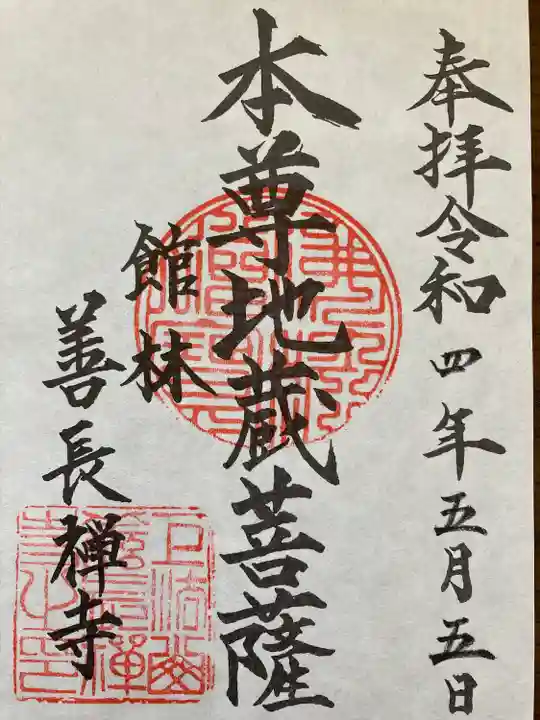 奉拝令和四年五月五日
本尊地蔵菩薩
館林
善長禅寺